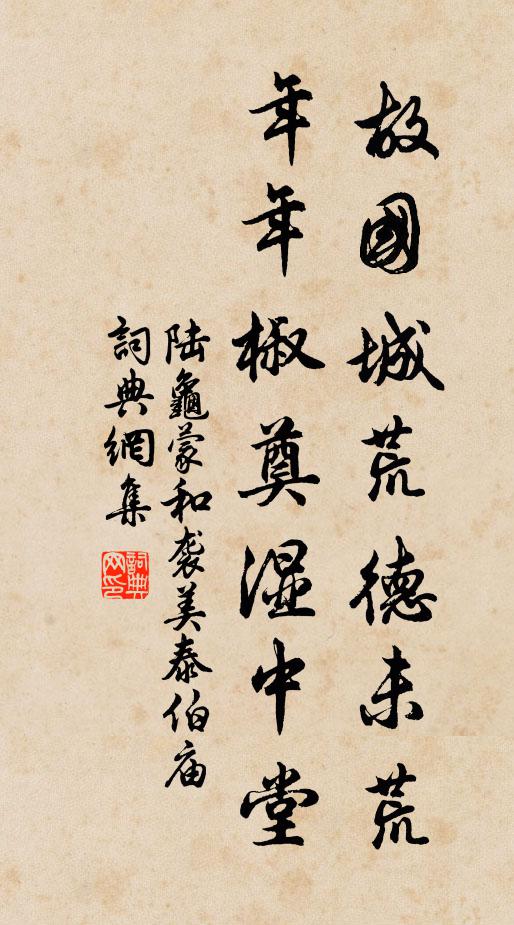 故國城荒德未荒
年年椒奠湿中堂
陆龜蒙和袭美泰伯庙
詞典網集
詞典网印